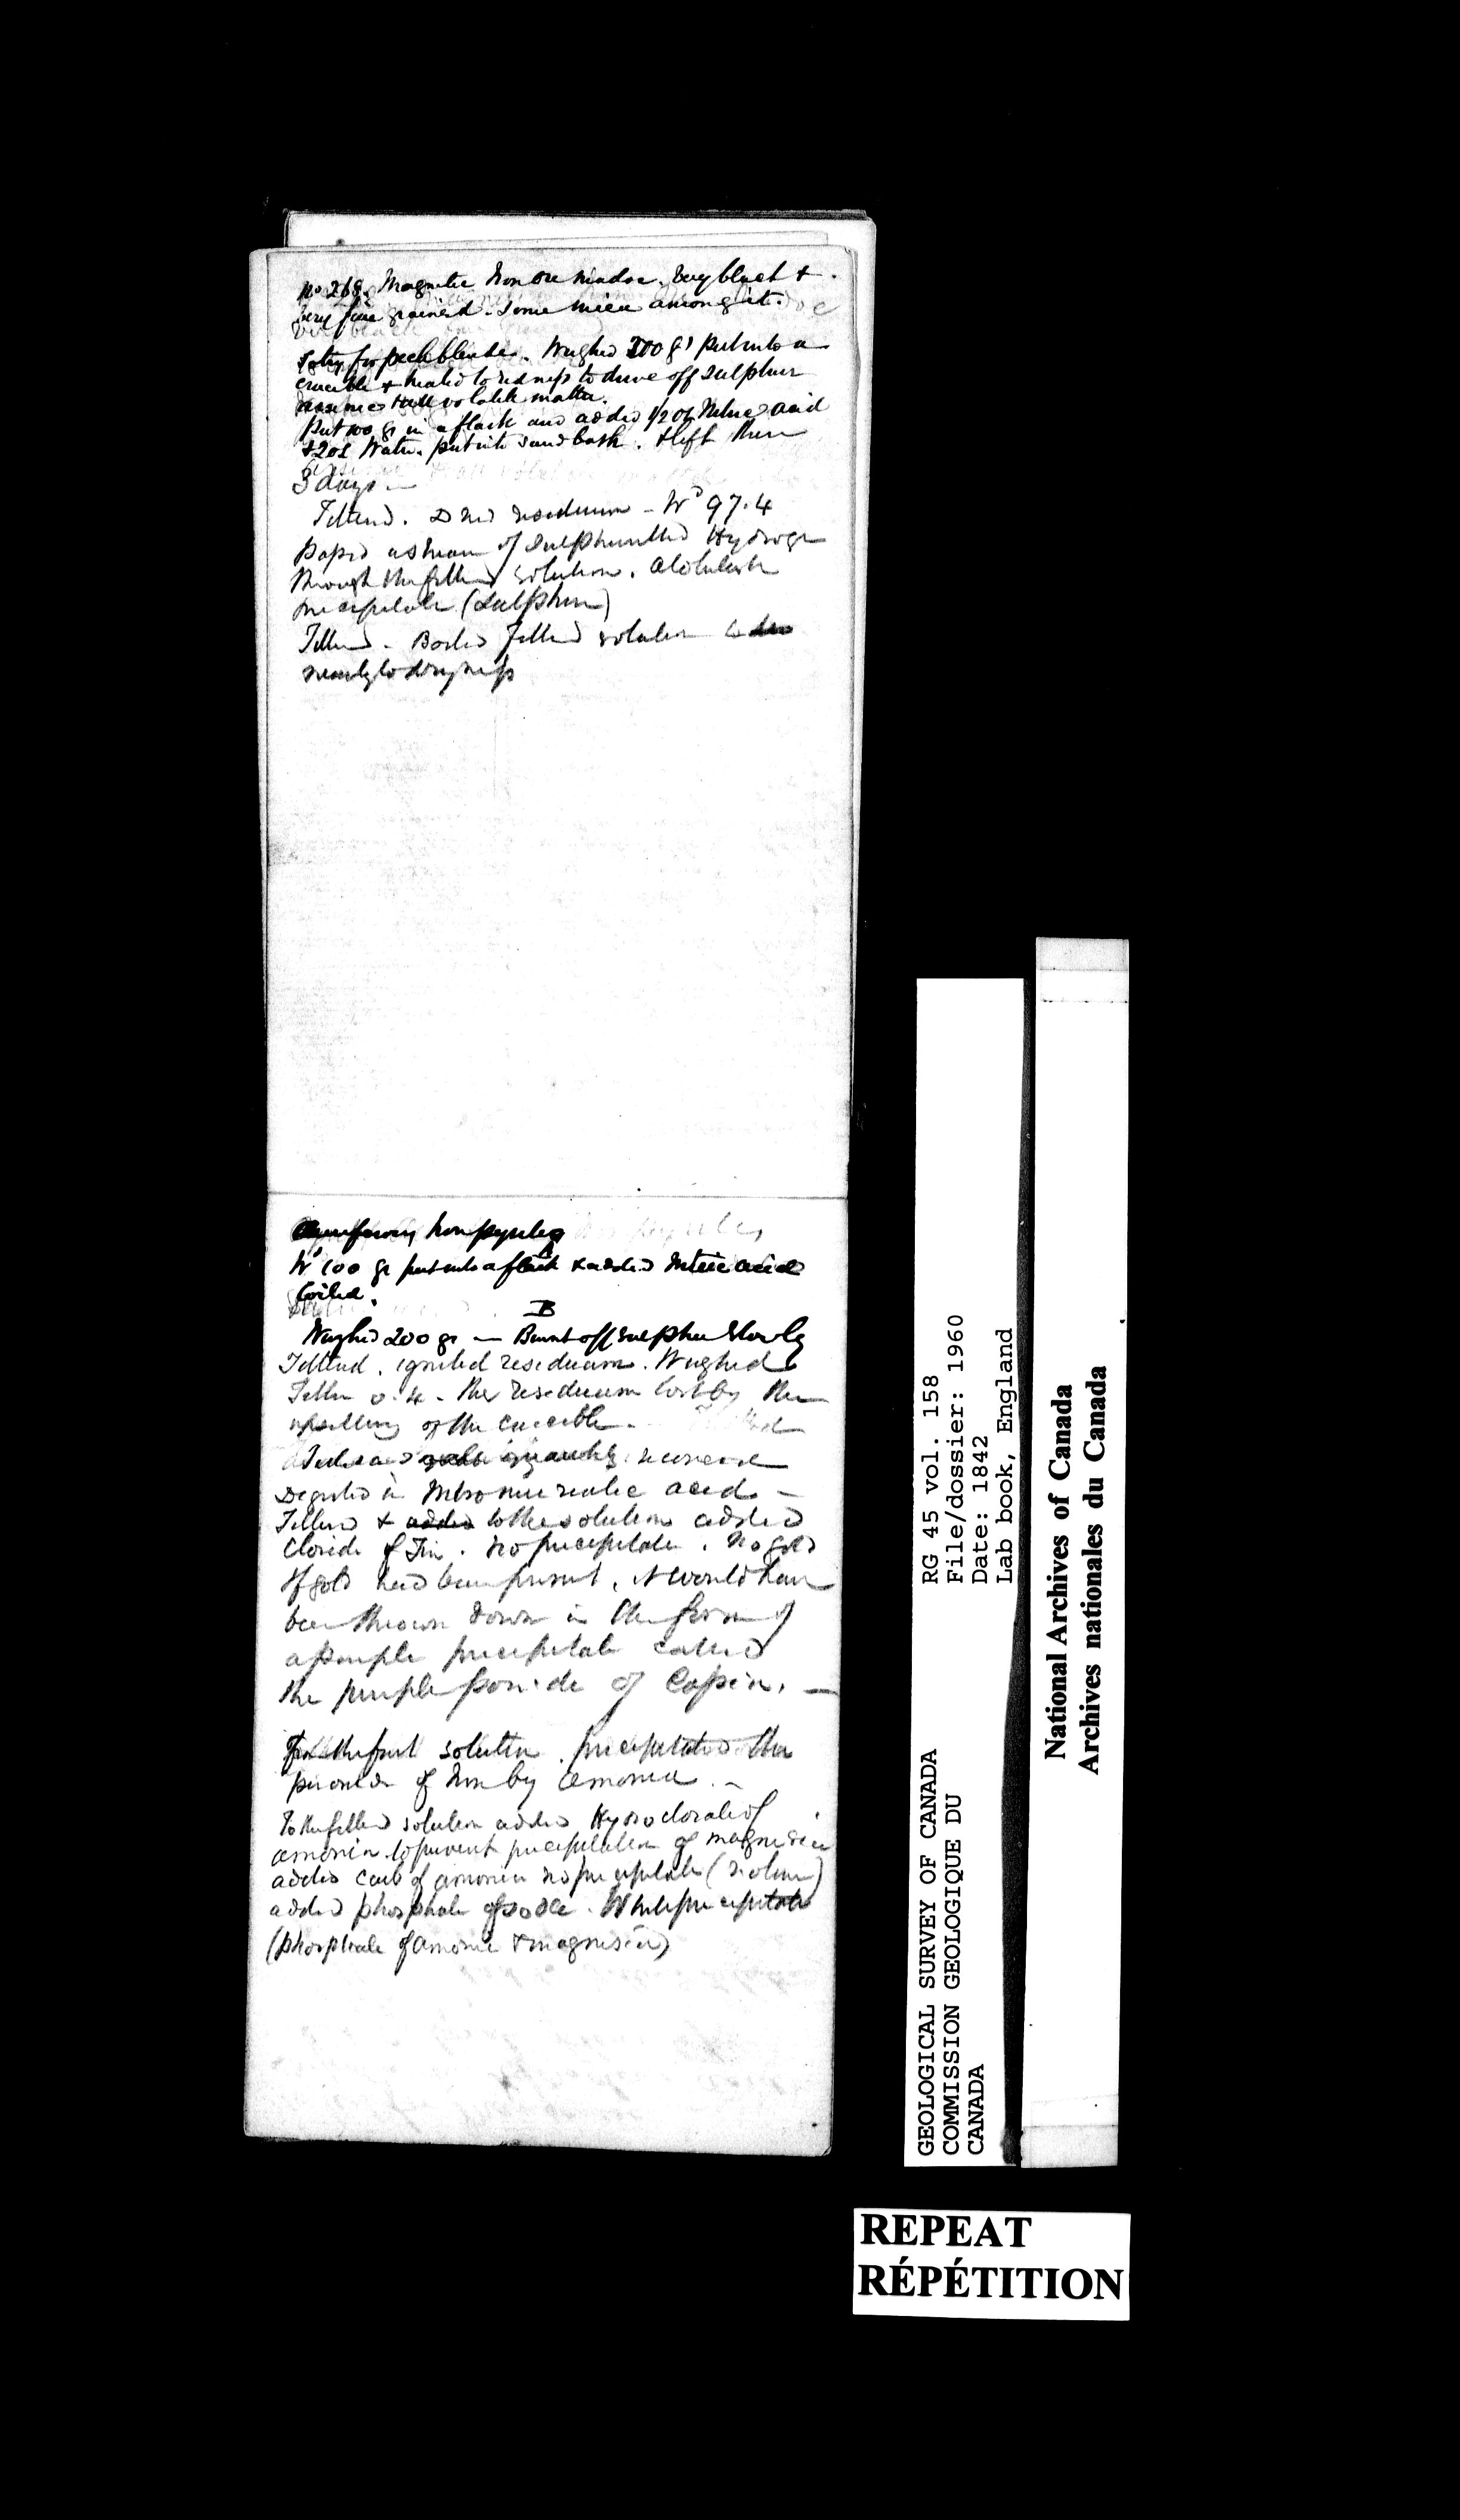 No 268. Magnetic Iron Ore Madoc. Very black &
very fine grained. Some mica among it.
for pechblende. Weighed 200 gr put into a
crucible & heated to redness to drive off sulphur
arsenic & all volatile matter.
Put 100 gr in a flask and added 1/2 oz Nitric acid
& 2 oz Water. put into sand bath. & left there
3 days —
Filtered. Dried residuum — Wd 97.4
Passd a stream of Sulphuretted Hydrogen
through the filtered solution. A whitish
precipitate (Sulphur)
Filtered. Boiled filtered solution to
nearly to dryness
Iron pyrites
A
Wd 100 gr put into a flask & added Nitric acid
boiled.
B
Weighed 200 gr — Burnt off sulphur slowly
Filtered. ignited residuum. Weighed
Filter 0.4. The residuum lost by the
upsetting of the crucible.
Digested in Nitro muriatic acid —
Filtered & added to the solution added
Cloride of Tin. No precipitate. No gold
If gold had been present, it would have
been thrown down in the form of
a purple precipitate called
the purple of Cassius. —
the first solution. precipitated the
peroxide of Iron by Amonia —
To the filtered solution added Hydroclorate of
amonia to prevent precipitation of magnesia
added carb of amonia no precipitate (no lime)
added phosphate of soda. White precipitate
(phosphate of amonia & magnesia)
GEOLOGICAL SURVEY OF CANADA
COMMISSION GEOLOGIQUE DU
CANADA
RG 45 vol. 158
File/dossier: 1960
Date: 1842
Lab book, England
National Archives of Canada
Archives nationales du Canada
REPEAT
RÉPÉTITION